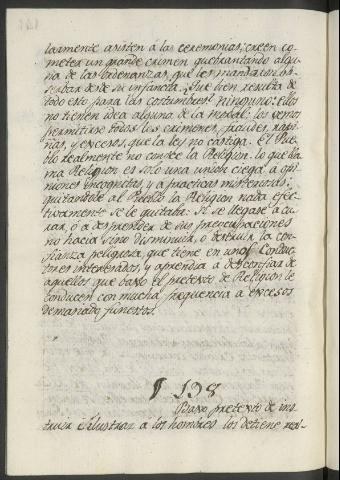 larmente asisten á las ceremonias; creen co-
meter un grande crimen quebrantando algu-
na de las ordenanzas, que les mandaron ob-
serbar desde su infancia. Que bien resulta de
todo esto para las costumbres? ninguno: Ellos
no tienen idea alguna de la moral: los vemos
permitirse todos los crimenes, fraudes, rapi-
ñas, y excesos, que la ley no castiga. El Pue-
blo realmente no conoce la Religion. lo que lla-
ma Religion es solo una union ciega á opi-
niones incognitas, y a practicas misteriosas:
quitandole al Pueblo la Religion nada efec-
tivamente se le quitaba: Si se llegase a cu-
rar, ó a desprender de sus preocupaciones
no haria sino disminuir, ó destruir la con-
fianza peligrosa, que tiene en unos Conduc-
tores interesados, y aprendia a desconfiar de
aquellos que baxo el pretexto de Religion le
conducen con mucha frequencia a excesos
demasiado funestos.
§ 198
Baxo pretexto de ins-
truir é ilustrar a los hombres los detiene real-